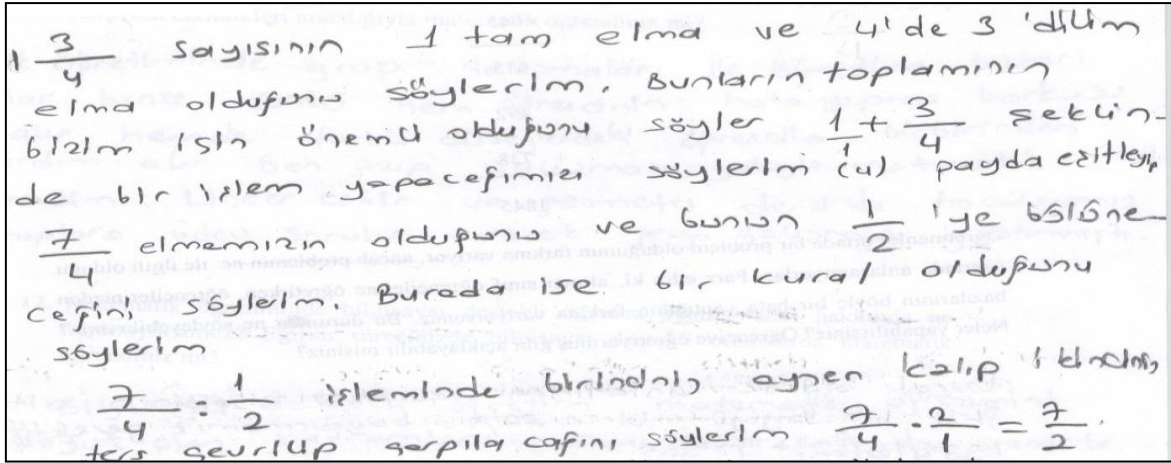 1 3/4 sayısının 1 tam elma ve 4'de 3 'dilim
elma olduğunu söylerim. Bunların toplamının
bizim için önemli olduğunu söyler 1/1 + 3/4 şeklin-
de bir işlem yapacağımızı söylerim (4) payda eşitleyip
7/4 elmamızın olduğunu ve bunun 1/2 'ye bölüne-
ceğini söylerim. Burada ise bir kural olduğunu
söyleri
7/4 : 1/2 işleminde birincinin aynen kalıp ikincinin
ters çevrilip çarpıla cağını söylerim 7/4 . 2/1 = 7/2